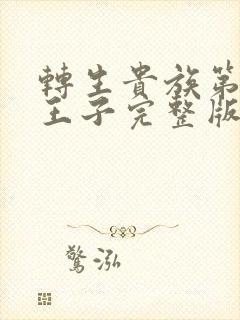 轉生貴族第
王子完整版
驚泓